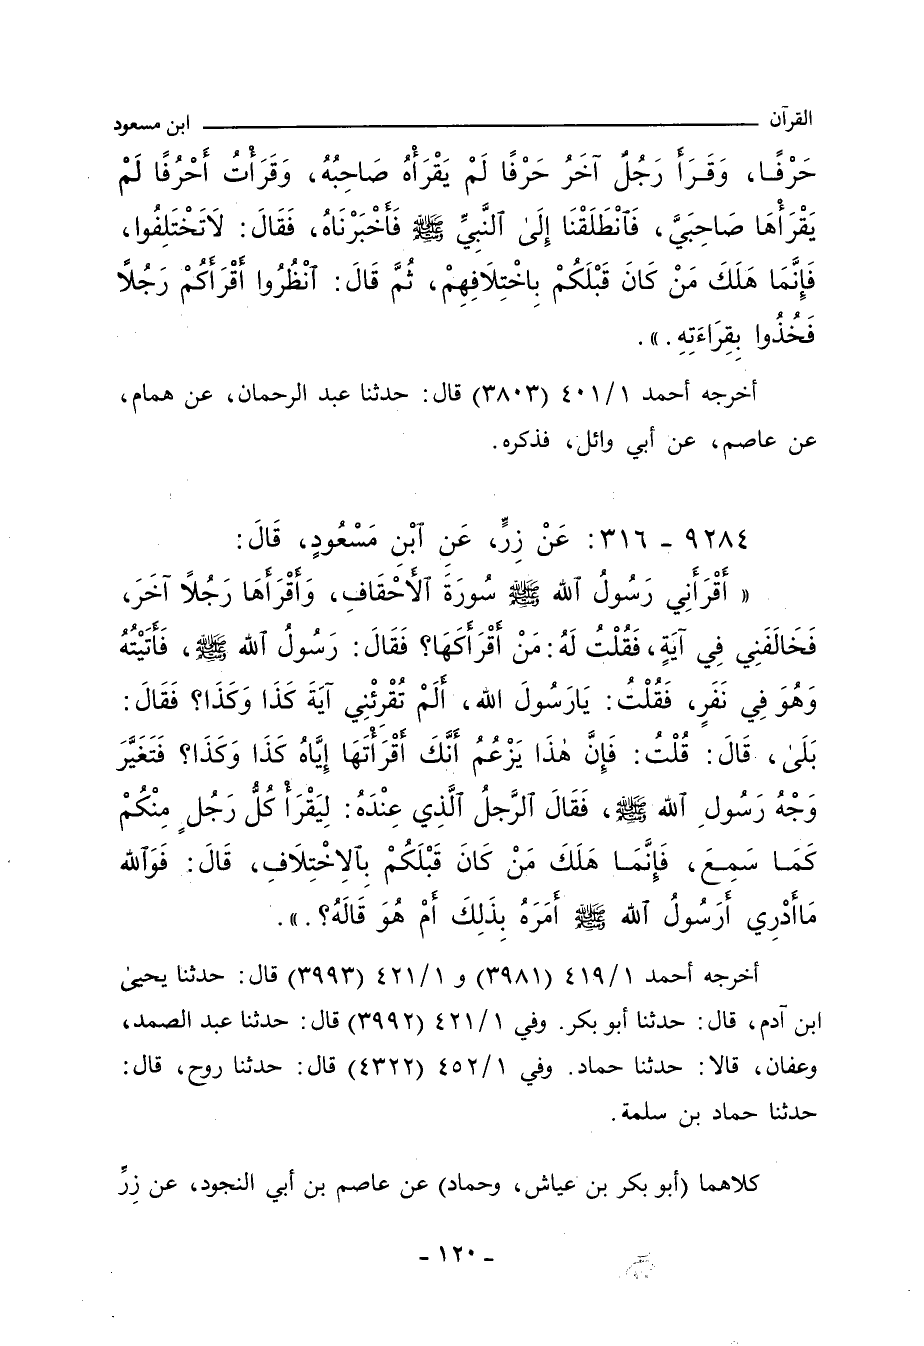 القرآن ــــــــــــــــــــ ابن مسعود
حَرْفًـا، وَقَـرَأَ رَجُلٌ آخَرُ حَرْفًا لَمْ يَقْرَأْهُ صَاحِبُهُ، وَقَرَأْتُ أَحْرُفًا لَمْ
يَقْرَأْهَا صَاحِبَيَّ، فَٱنْطَلَقْنَا إِلَىٰ ٱلنَّبِيِّ ﷺ فَأَخْبَرْنَاهُ، فَقَالَ: لَاتَخْتَلِفُوا،
فَإِنَّمَا هَلَكَ مَنْ كَانَ قَبْلَكُمْ بِاخْتِلَافِهِمْ، ثُمَّ قَالَ: ٱنْظُرُوا أَقْرَأَكُمْ رَجُلًا
فَخُذُوا بِقِرَاءَتِهِ.».
أخرجه أحمد ٤٠١/١ (٣٨٠٣) قال: حدثنا عبد الرحمان، عن همام،
عن عاصم، عن أبي وائل، فذكره.
٩٢٨٤ - ٣١٦: عَنْ زِرٍّ، عَنِ ٱبْنِ مَسْعُودٍ، قَالَ:
« أَقْرَأَنِي رَسُولُ ٱلله ﷺ سُورَةَ ٱلْأَحْقَافِ، وَأَقْرَأَهَا رَجُلًا آخَرَ،
فَخَالَفَنِي فِي آيَةٍ، فَقُلْتُ لَهُ: مَنْ أَقْرَأَكَهَا؟ فَقَالَ: رَسُولُ ٱلله ﷺ، فَأَتَيْتُهُ
وَهُوَ فِي نَفَرٍ، فَقُلْتُ: يَارَسُولَ الله، أَلَمْ تُقْرِئْنِي آيَةَ كَذَا وَكَذَا؟ فَقَالَ:
بَلَىٰ، قَالَ: قُلْتُ: فَإِنَّ هٰذَا يَزْعُمُ أَنَّكَ أَقْرَأْتَهَا إِيَّاهُ كَذَا وَكَذَا؟ فَتَغَيَّرَ
وَجْهُ رَسُولِ ٱلله ﷺ، فَقَالَ ٱلرَّجلُ ٱلَّذِي عِنْدَهُ: لِيَقْرَأْ كُلُّ رَجُلٍ مِنْكُمْ
كَمَـا سَمِعَ، فَإِنَّمَـا هَلَكَ مَنْ كَانَ قَبْلَكُمْ بِٱلاِخْتِلَافِ، قَالَ: فَوَٱلله
مَاأَدْرِي أَرَسُولُ ٱلله ﷺ أَمَرَهُ بِذَلِكَ أَمْ هُوَ قَالَهُ؟.».
أخرجه أحمد ٤١٩/١ (٣٩٨١) و ٤٢١/١ (٣٩٩٣) قال: حدثنا يحيىٰ
ابن آدم، قال: حدثنا أبو بكر. وفي ٤٢١/١ (٣٩٩٢) قال: حدثنا عبد الصمد،
وعفان، قالا: حدثنا حماد. وفي ٤٥٢/١ (٤٣٢٢) قال: حدثنا روح، قال:
حدثنا حماد بن سلمة.
كلاهما (أبو بكر بن عياش، وحماد) عن عاصم بن أبي النجود، عن زِرٍّ
- ١٢٠ -